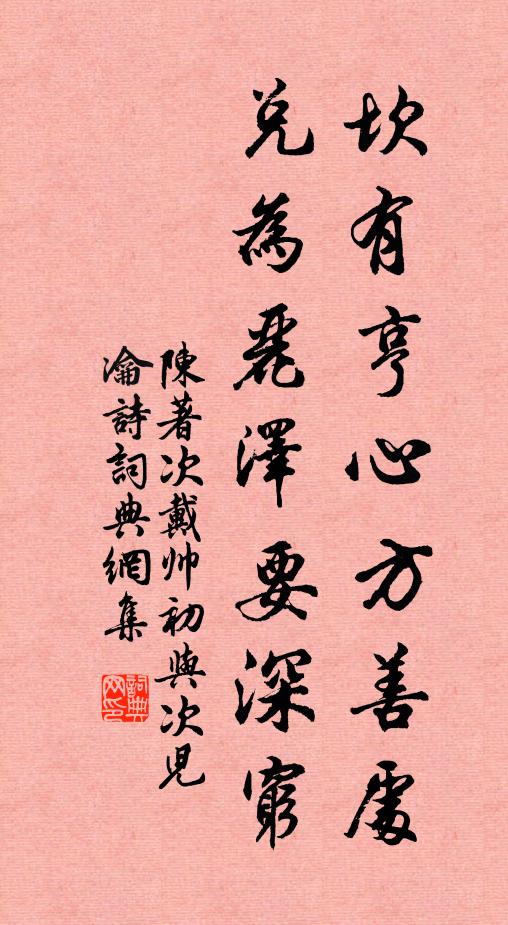 坎有亨心方善處
兌為麗澤要深窮
陳著次戴帅初與次児
瀹詩詞典網集
詞典
网印